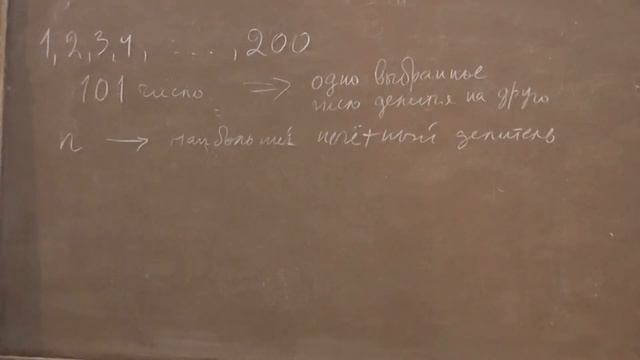 1, 2, 3, 4, ..., 200
101 число ⇒ одно выбранное
число делится на друго
n → наибольший нечётный делитель